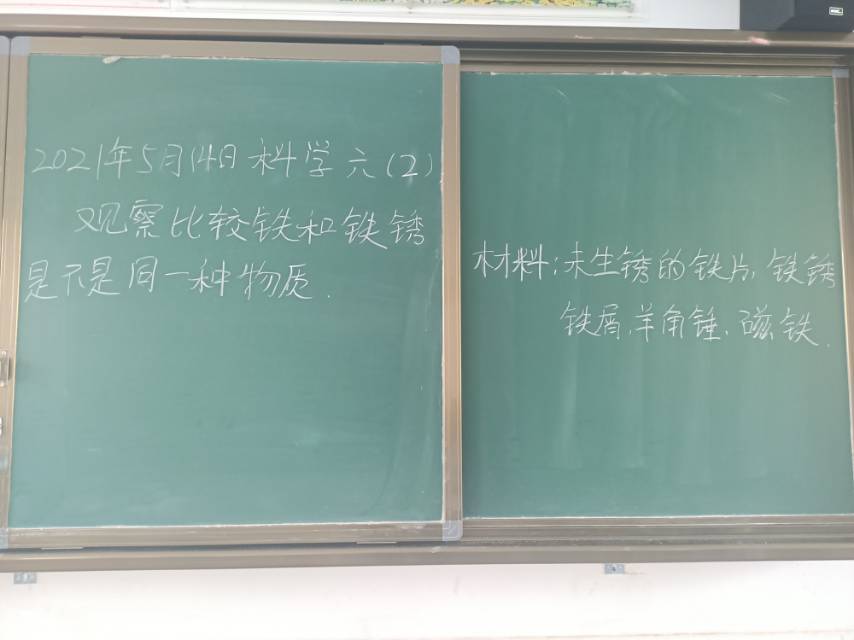 2021年5月14日 科学 六(2)
观察比较铁和铁锈
是不是同一种物质.
材料:未生锈的铁片,铁锈
铁屑,羊角锤.磁铁.